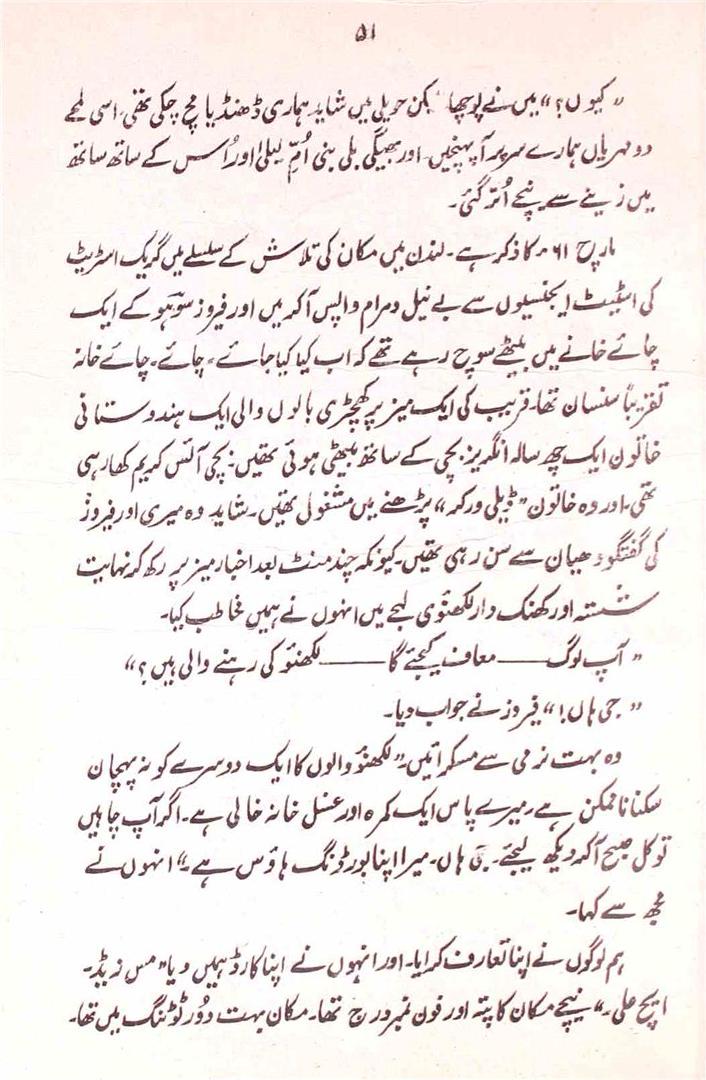 ۵۱
”کیوں؟“ میں نے پوچھا لیکن حویلی میں شاید ہماری ڈھنڈیا مچ چکی تھی، اسی لمحے
دو مہریاں ہمارے سر پر آ پہنچیں۔ اور بھیگی بلی بنی اُمِّ لیلیٰ اور اُس کے ساتھ ساتھ
میں زینے سے نیچے اُتر گئی۔
مارچ ۶۱ء کا ذکر ہے۔ لندن میں مکان کی تلاش کے سلسلے میں گریک اسٹریٹ
کی اسٹیٹ ایجنسیوں سے بے نیل و مرام واپس آ کر میں اور فیروز سوہو کے ایک
چائے خانے میں بیٹھے سوچ رہے تھے کہ اب کیا کیا جائے۔ چائے خانہ
تقریباً سنسان تھا۔ قریب کی ایک میز پر کھچڑی بالوں والی ایک ہندوستانی
خاتون ایک چھ سالہ انگریز بچی کے ساتھ بیٹھی ہوئی تھیں۔ بچی آئس کریم کھا رہی
تھی۔ اور وہ خاتون ”ڈیلی ورکر“ پڑھنے میں مشغول تھیں۔ شاید وہ میری اور فیروز
کی گفتگو دھیان سے سن رہی تھیں۔ کیونکہ چند منٹ بعد اخبار میز پر رکھ کر نہایت
شستہ اور کھنک دار لکھنوی لہجے میں انہوں نے ہمیں مخاطب کیا۔
”آپ لوگ —— معاف کیجئے گا —— لکھنؤ کی رہنے والی ہیں؟“
”جی ہاں!“ فیروز نے جواب دیا۔
وہ بہت نرمی سے مسکرائیں۔ ”لکھنؤ والوں کا ایک دوسرے کو نہ پہچان
سکنا ناممکن ہے۔ میرے پاس ایک کمرہ اور غسل خانہ خالی ہے۔ اگر آپ چاہیں
تو کل صبح آ کر دیکھ لیجئے۔ جی ہاں۔ میرا اپنا بورڈنگ ہاؤس ہے۔“ انہوں نے
مجھ سے کہا۔
ہم لوگوں نے اپنا تعارف کرایا۔ اور انہوں نے اپنا کارڈ ہمیں دیا ”مس زیڈ۔
ایچ علی۔“ نیچے مکان کا پتہ اور فون نمبر درج تھا۔ مکان بہت دُور ٹوٹنگ میں تھا۔